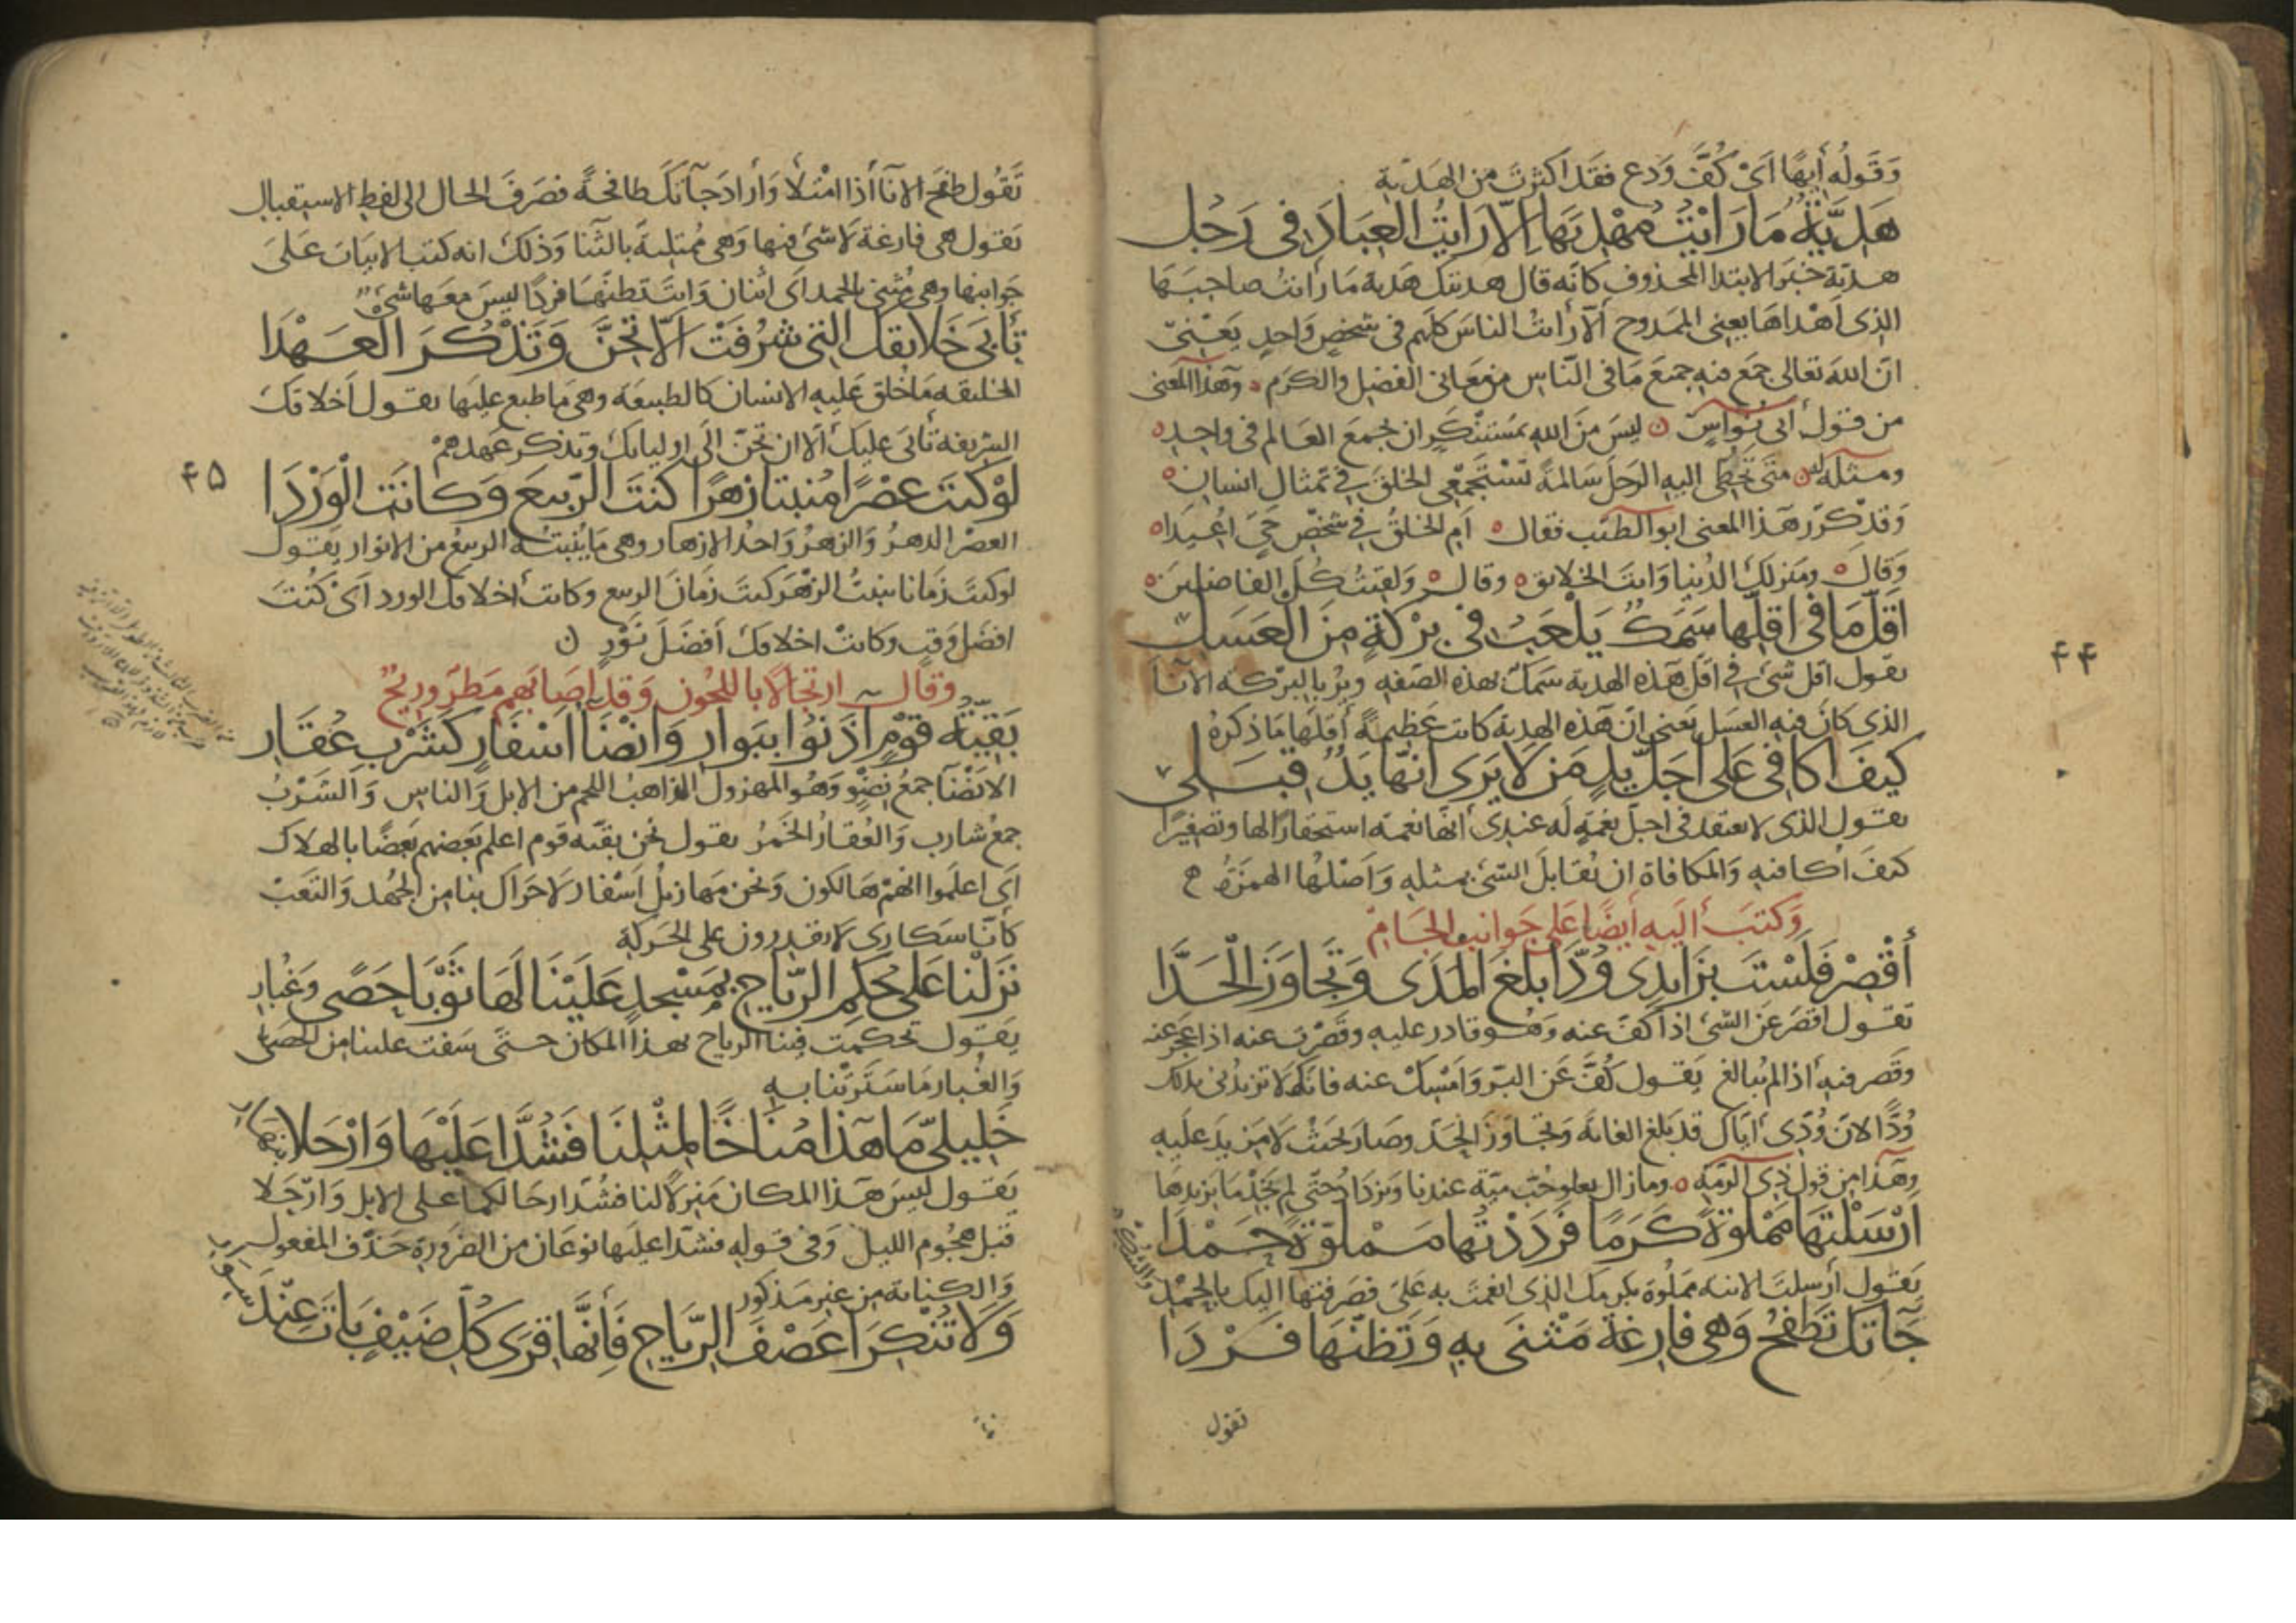 وَقَولُه أَيهًا اَىْ كُفَّ وَدع فقَد اكثرتَ من الهَديّة
هَدِيَّةٌ مَا رَايْتُ مُهْدِيَهَا اِلّا رَايْتُ العِبَادَ فى رَجُل
هديّة خبر الابتدا المحذوف كانّه قال هديتك هَدية مَا رأيتُ صاحِبَهَا
الذى اَهْداهَا يعنى الممَدوح اَلّا رأيتُ الناسَ كلهم فى شخصٍ وَاحدٍ يَعْنِى
انّ اللهَ تعَالى جمَع فيه جميَع مَا فى النّاسِ من مَعَانى الفضِل والكَرَم وَهَذا المعَنى
من قول أبى نُوَاسٍ ليسَ مِنَ اللهِ بمُستنْكَرٍ ان يجمعَ العَالم فى واحِدِ
ومثله متى تحُطّى اليه الرحلَ سَالمةً تَسْتَجْمِعى الخلقَ فى تمثال انسان
وَقدْ كرّر هَذا المعنى ابو الطيّب فقال اَمِ الخلقُ فى شَخْصِ حَىٍّ اُعِيْدَا
وَقالَ ومَنزلك الدُنيا وَانتَ الخلايق وقال وَلقيتُ كُلَّ الفاضلينَ
اَقَلُّ مَا فى اَقلِّها سَمَكٌ يَلْعَبُ فى بِرْكَةٍ مِنَ العَسَلِ
يقول اقل شىء فى اقل هَذه الهدية سَمَك بهذه الصّفه ويُرِيْد بالبرْكة الآنآ
الذى كانَ فيه العسَل يَعنى انّ هَذه الهدية كانت عَظيمةً أقلّها مَا ذكرهُ
كيفَ اُكافى عَلى اَجَلِّ يَدٍ مَن لَا يَرَى انّها يَدٌ قِبَلِى
يقول الذى لا يعتقد فى اجلّ نعمَةٍ لَه عندِى أنها نعمَة استحقارًا لها وتصغيرًا
كيفَ اُكافيه وَالمكافاة ان تُقابلَ الشىءَ بمثله وَاَصْلهُا الهمزةُ
وَكتبَ اليه أيضًا عَلى جَوانب الجَامِ
أَقْصِرْ فَلَسْتَ بزَايدِى وُدَّا بلَغَ المَدَى وَتَجَاوَزَ الْحَدَّا
تقول اقصَر عَن الشىءِ اذا كفّ عنه وَهُو قادر عليه وقَصّرتَ عنه اذا عجزَ عنه
وقَصر فيه اذا لم يُبالغ يَقول كُفَّ عَن البِرّ وَامْسِكْ عنه فانك لا تزيدُنى بذلك
وُدًّا لانّ وُدّى ايّاك قد بَلغ الغايَة وَتجَاوَزَ الحَدّ وصَار بحيثُ لا مَزيدَ عَليه
وهَذا من قول ذى الرّمّة ومازال يعلو حُبّ مَيّة عندنا وَيَزدَادُ حتى لم نجِدْ مَا يَزيدهَا
اَرْسَلْتَهَا مَمْلوّةً كَرَمًا فَرَدَدْتُها مَمْلوّةً حَمْدًا
يَقول أرسلتَ الانيه مَملُوة بكرمك الذى انعمتَ به عَلىّ فصَرفتها اليك بالحمْد
والشكر
جَآتكَ تَطفحُ وَهى فارغة مَثْنَى بِهِ وَتَظنّها فَرْدَا
تقول
۴۴
تَقُول طَفحَ الانآ أذا امْتلأَ وَأرادَ جَآتك طافحةً فصَرفَ الحال الى لفظِ الاستقبالِ
يَقول هى فارغة لَا شىءَ فيها وَهى مُمتلِيةٌ بالثّنا وَذلكَ انه كتب الابيَاتَ عَلَى
جَوانِبها وهى مَثنى بالحمد اَى اثنان وَانتَ تظنّهَا فردًا ليسَ معَها شىءٌ
تأبَى خَلايقك التى شرُفَتْ اَلّا تحِنَّ وَتَذْكُرَ الْعَهْدَا
الخليقه مَا خُلق عَليه الانسان كالطبيعَة وهى مَا طبع عليها يقول أخلاقكَ
الشريفه تأبى عليكَ اَلا ان تحِنّ الَى اوليائكَ وتذكر عَهدهمْ
لَوْ كنتَ عصْرًا مُنْبتا زهرًا كنتَ الرّبيعَ وَكانَتِ الْوَرْدَا
العصْر الدهرُ وَالزهرُ وَاحدُ الازهار وهى مَا يُنْبتهُ الربيعُ من الانوار يَقول
لو كنتَ زمَانا ينبتُ الزهْرَ كنتَ زمَانَ الربيع وكانت أخلاقك الورد اَىْ كُنتَ
افضَل وَقتٍ وكانتْ اخلاقكَ أفضَلَ نَوْرٍ
وقال ارتجالًا باللجُون وَقد اصَابَهم مَطرٌ وريحٌ
بَقِيّةُ قوْمٍ اٰذَنُوا ببَوارِ وَانْضآءُ اسْفَارٍ كَشَرْبِ عُقَارِ
الانَضْآ جمعُ نِضْوٍ وَهُو المهزول الذاهبُ اللحم من الابل وَالناس وَالشَرْبُ
جمعُ شارب وَالعُقارُ الخمرُ يقول نحن بقيّه قوم اعلم بَعضهم بَعضًا بالهلاك
اَى اعلموا انهمْ هَالكون وَنحن مهَازيلُ اَسْفار لَا حَراكَ بنا مِن الجهُد وَالتعَبْ
كانّا سَكارى لَا يقدِرون على الحَركَةِ
نَزَلْنَا عَلى حُكِم الرّياحِ بِمَسْجِدٍ عَلَيْنَا لَهَا ثَوْبَا حَصًى وَغُبارِ
يَقول تحكمت فينا الرياح بهذا المكان حتّى سَفت علينا من الحصَى
وَالغُبار مَا سَتَرتْنا به
خَلِيليّ مَا هَذا مُنَاخًا لِمثْلِنَا فَشُدَّا عَلَيْها وَارْحَلا بنهَارِ
يَقول ليسَ هَذا المكان مَنزلًا لنا فشُدّا رحَالكما على الابل وَارْحَلَا
قبَل هجُوم الليل وَفى قولِه فشدّا علَيها نوعَان من الضرورة حَذف المفعول
وَالكناية من غير مَذكور
وَلَا تُنْكِرَا عَصْفَ الرّيَاحِ فَاِنَّها قِرَى كُلّ ضَيْفٍ بَاتَ عِنْدَ سِوَارِ
۴۵